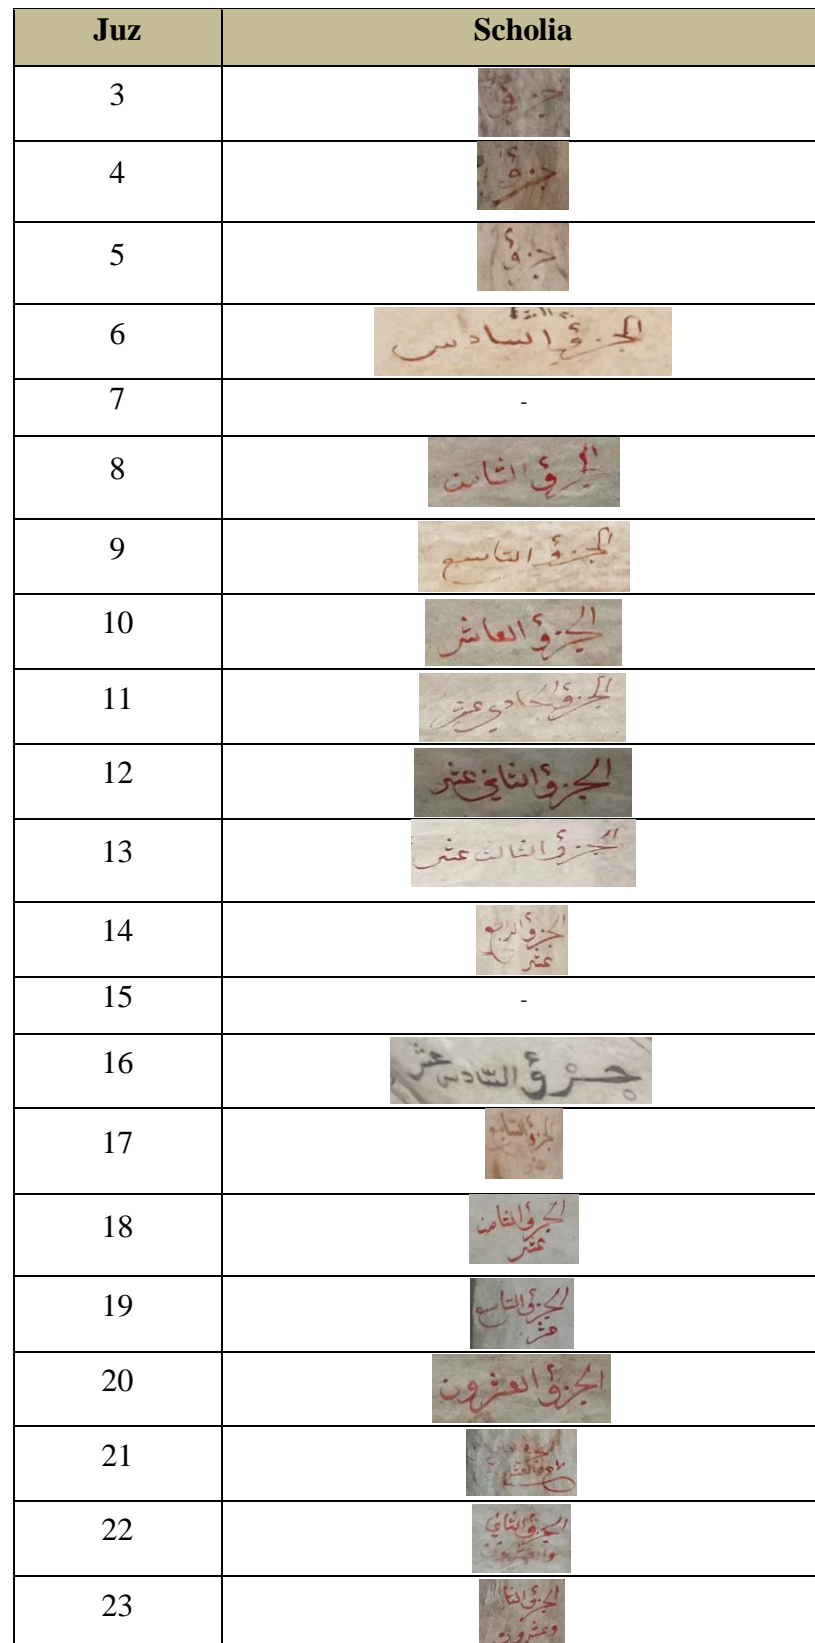 Juz Scholia
3 جزؤ
4 جزؤ
5 جزؤ
6 الجزؤ السادس
7 -
8 الجزؤ الثامن
9 الجزؤ التاسع
10 الجزؤ العاشر
11 الجزؤ الحادي عشر
12 الجزؤ الثاني عشر
13 الجزؤ الثالث عشر
14 الجزؤ الرابع
عشر
15 -
16 جزؤ السّادس عشر
17 الجزؤ السّابع
عشر
18 الجزؤ الثامن
عشر
19 الجزؤ التاسع
عشر
20 الجزؤ العشرون
21
22 الجزؤ الثاني
والعشرون
23 الجزؤ الثا
وعشرون